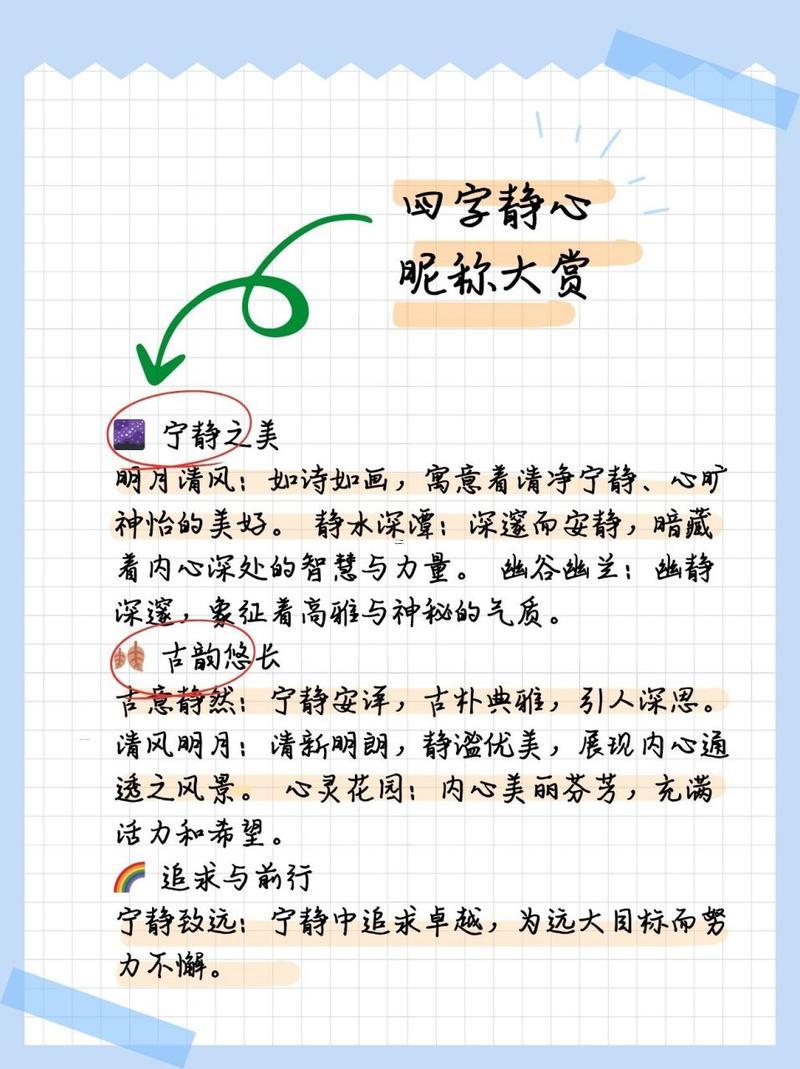 四字静心
昵称大赏
🌌 宁静之美
明月清风：如诗如画，寓意着清净宁静、心旷
神怡的美好。 静水深潭：深邃而安静，暗藏
着内心深处的智慧与力量。 幽谷幽兰：幽静
深邃，象征着高雅与神秘的气质。
🍂 古韵悠长
古意静然：宁静安详，古朴典雅，引人深思。
清风明月：清新明朗，静谧优美，展现内心通
透之风景。 心灵花园：内心美丽芬芳，充满
活力和希望。
🌈 追求与前行
宁静致远：宁静中追求卓越，为远大目标而努
力不懈。